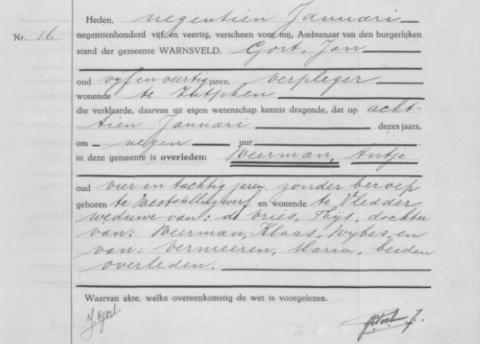 Heden, negentien Januari
Nr. 16
negentienhonderd vijf en veertig, verscheen voor mij, Ambtenaar van den burgerlijken
stand der gemeente WARNSVELD: Gort, Jan
oud vijf en veertig jaren, verpleger
wonende te Zutphen
die verklaarde, daarvan uit eigen wetenschap kennis dragende, dat op acht-
tien Januari dezes jaars,
om negen uur
in deze gemeente is overleden: Weerman, Antje
oud vier en tachtig jaren, zonder beroep
geboren te Weststellingwerf en wonende te Vledder
weduwe van: de Vries, Thijs, dochter
van: Weerman, Klaas, Wybes, en
van: Vermeeren, Maria, beiden
overleden.
Waarvan akte, welke overeenkomstig de wet is voorgelezen.
J Gort